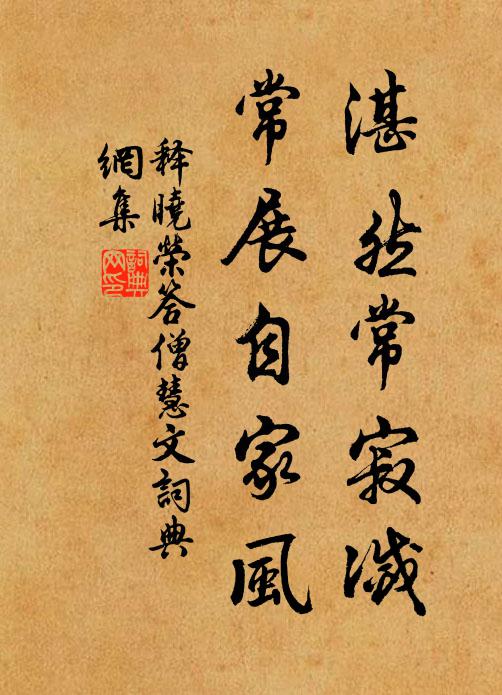 湛然常寂滅
常展自家風
释曉榮答僧慧文詞典
網集
詞典
网印